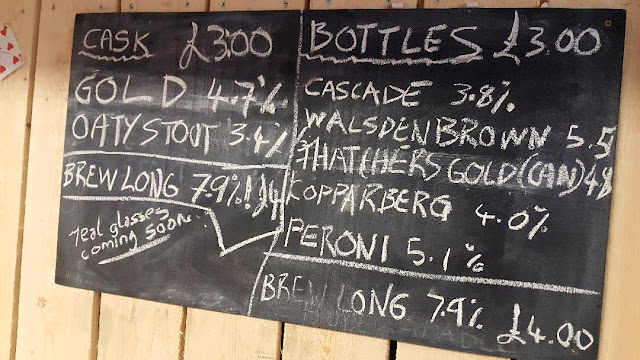 CASK £3.00
GOLD 4.7%
OATY STOUT 3.4%
BREW LONG 7.9%! £4
real glasses
coming soon!
BOTTLES £3.00
CASCADE 3.8%
WALSDEN BROWN 5.5
THATCHERS GOLD (CAN) 4.8
KOPPARBERG 4.0%
PERONI 5.1%
BREW LONG 7.9% £4.00